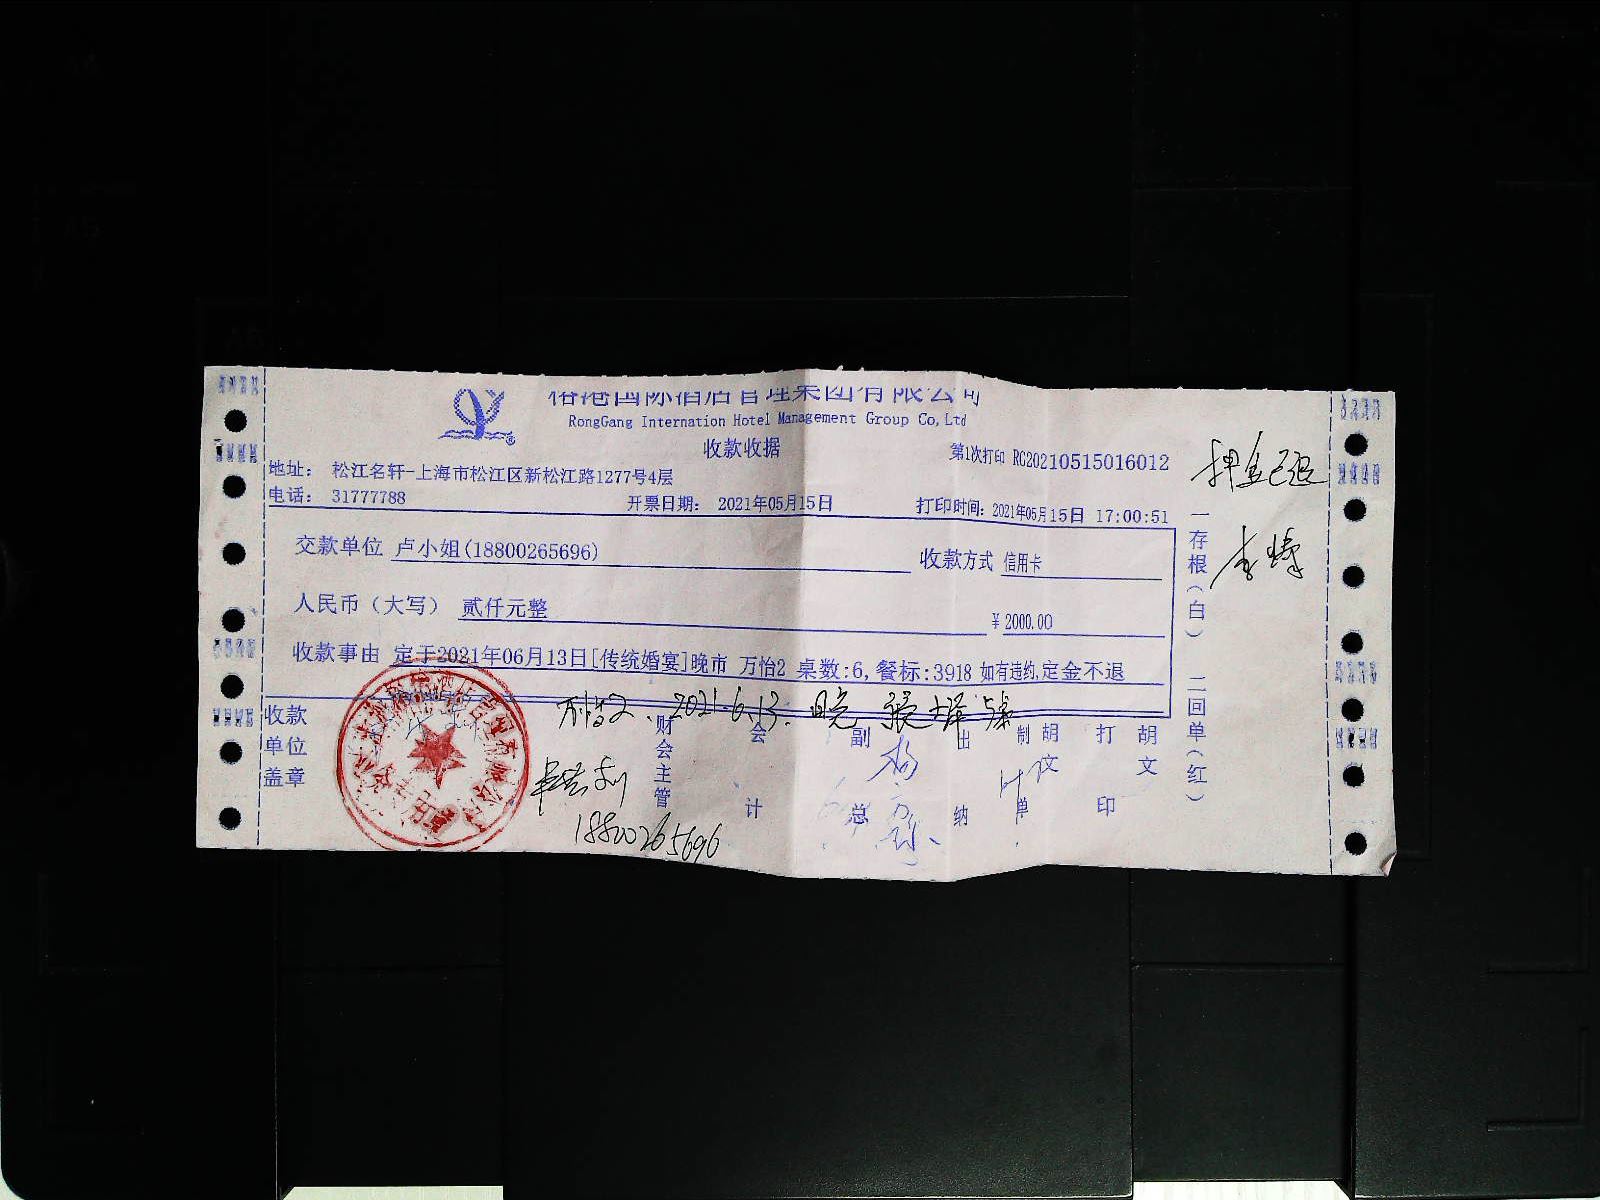 国际酒店管理集团有限公司
RongGang Internation Hotel Management Group Co,Ltd
收款收据
第1次打印 RG20210515016012
地址： 松江名轩-上海市松江区新松江路1277号4层
电话： 31777788
开票日期： 2021年05月15日
打印时间：2021年05月15日 17:00:51
交款单位 卢小姐(18800265696)
收款方式 信用卡
人民币（大写） 贰仟元整
¥2000.00
收款事由 定于2021年06月13日[传统婚宴]晚市 万怡2 桌数:6,餐标:3918 如有违约,定金不退
万怡2、2021.6.13.
收款单位盖章
财会主管
会计
副总
出纳
制单
胡文
打印
胡文
18800265696
押金已退
一存根(白) 二回单(红)